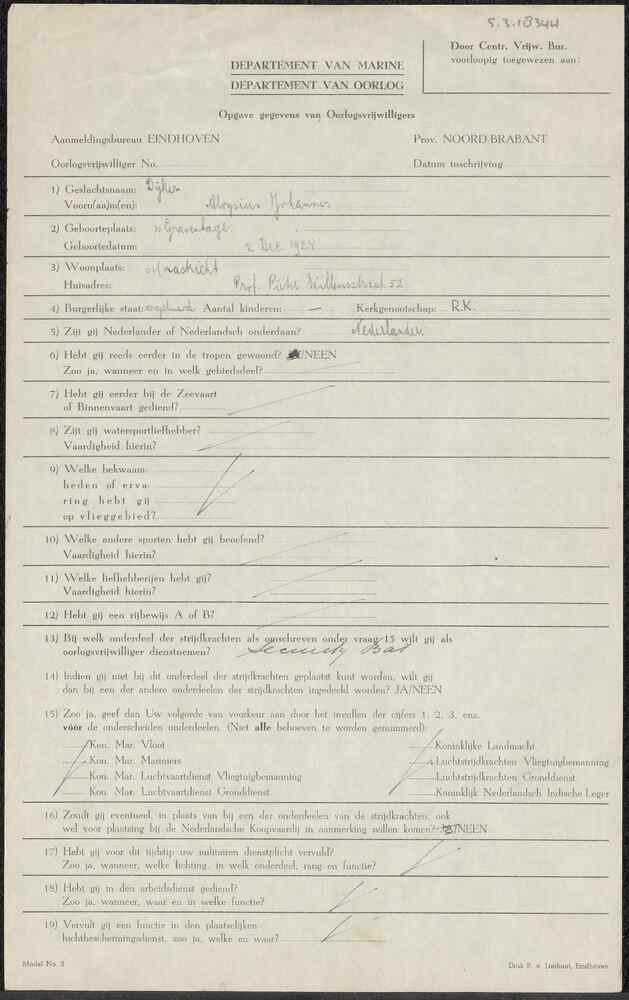 5.3.18344
Door Centr. Vrijw. Bur.
voorloopig toegewezen aan:
DEPARTEMENT VAN MARINE
DEPARTEMENT VAN OORLOG
Opgave gegevens van Oorlogsvrijwilligers
Aanmeldingsbureau EINDHOVEN Prov. NOORD-BRABANT
Oorlogsvrijwilliger No. Datum inschrijving
1) Geslachtsnaam:
Voorna(a)m(en): Aloysius Johannes
2) Geboorteplaats: 's Gravenhage
Geboortedatum: 2 Dec 1924
3) Woonplaats: Maastricht
Huisadres: Prof. Pieter Willemsstraat 52
4) Burgerlijke staat: ongehuwd Aantal kinderen: — Kerkgenootschap: R.K.
5) Zijt gij Nederlander of Nederlandsch onderdaan? Nederlander
6) Hebt gij reeds eerder in de tropen gewoond? /NEEN
Zoo ja, wanneer en in welk gebiedsdeel?
7) Hebt gij eerder bij de Zeevaart
of Binnenvaart gediend?
8) Zijt gij watersportliefhebber?
Vaardigheid hierin?
9) Welke bekwaam-
heden of erva-
ring hebt gij
op vlieggebied?
10) Welke andere sporten hebt gij beoefend?
Vaardigheid hierin?
11) Welke liefhebberijen hebt gij?
Vaardigheid hierin?
12) Hebt gij een rijbewijs A of B?
13) Bij welk onderdeel der strijdkrachten als omschreven onder vraag 15 wilt gij als
oorlogsvrijwilliger dienstnemen? Security Bat
14) Indien gij niet bij dit onderdeel der strijdkrachten geplaatst kunt worden, wilt gij
dan bij een der andere onderdeelen der strijdkrachten ingedeeld worden? JA/NEEN
15) Zoo ja, geef dan Uw volgorde van voorkeur aan door het invullen der cijfers 1, 2, 3, enz.
vóór de onderscheiden onderdeelen. (Niet alle behoeven te worden genummerd):
Kon. Mar. Vloot Koninklijke Landmacht
Kon. Mar. Mariniers Luchtstrijdkrachten Vliegtuigbemanning
Kon. Mar. Luchtvaartdienst Vliegtuigbemanning Luchtstrijdkrachten Gronddienst
Kon. Mar. Luchtvaartdienst Gronddienst Koninklijk Nederlandsch Indische Leger
16) Zoudt gij eventueel, in plaats van bij een der onderdeelen van de strijdkrachten, ook
wel voor plaatsing bij de Nederlandsche Koopvaardij in aanmerking willen komen? JA/NEEN
17) Hebt gij voor dit tijdstip uw militairen dienstplicht vervuld?
Zoo ja, wanneer, welke lichting, in welk onderdeel, rang en functie?
18) Hebt gij in den arbeidsdienst gediend?
Zoo ja, wanneer, waar en in welke functie?
19) Vervult gij een functie in den plaatselijken
luchtbeschermingsdienst, zoo ja, welke en waar?
Model No. 3 Druk P. v. Lierhout, Eindhoven